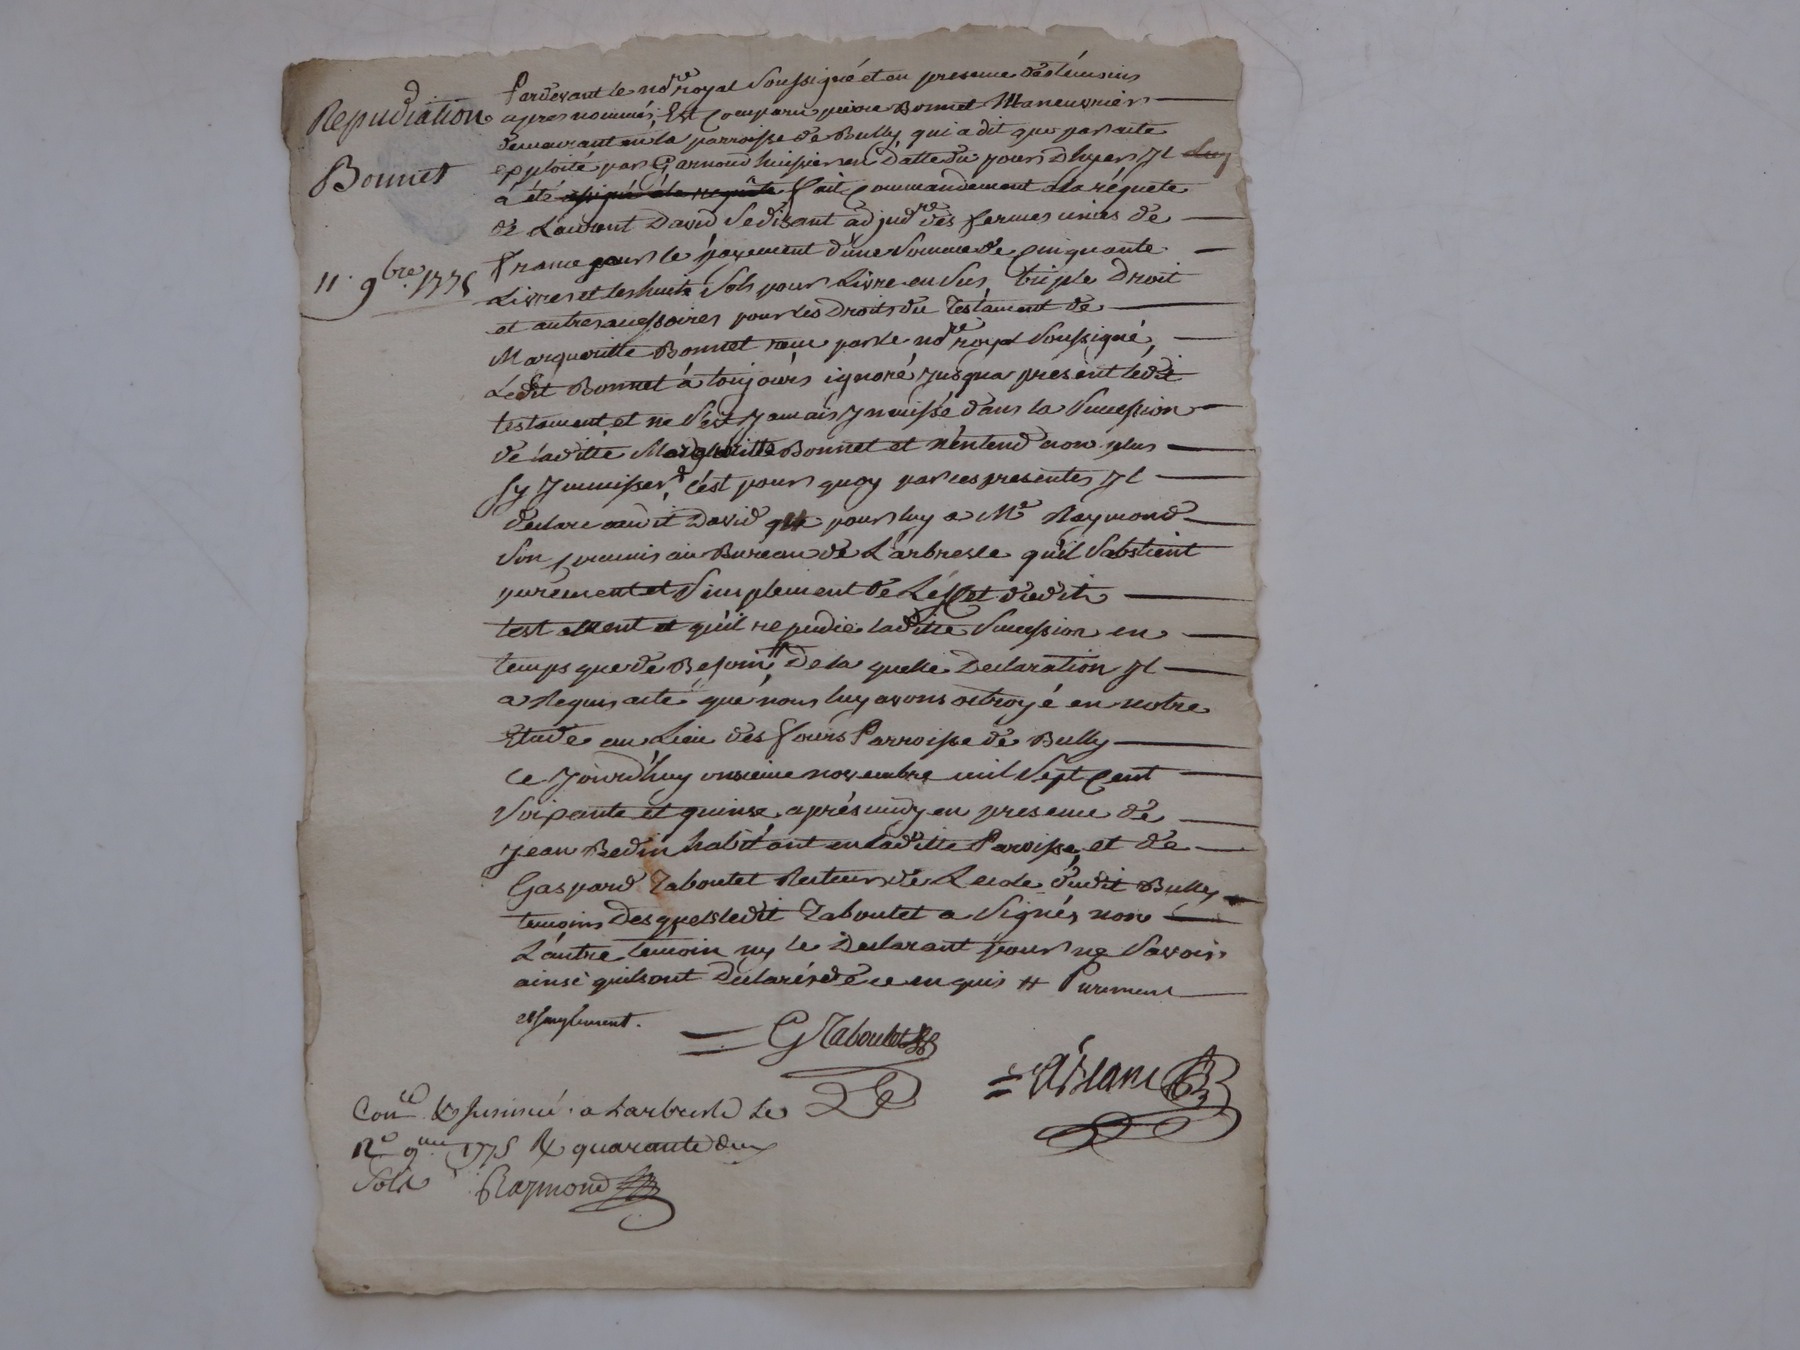 Repudiation
Bonnet
11. 9bre. 1775
Pardevant le nore royal soussigné et en presence des témoins
apres nommés, Est comparu pierre Bonnet Maneuvrier
demeurant en la parroisse de Bully, qui a dit que par acte
exploité par Garnoud huissier en datte du jours Dhyer, Jl luy
a été assigné à la requte fait commandement ala réquete
de Laurent David se disant adjudre des fermes unies de
france pour le payement d'une somme de cinquante
Livres et les huits sols pour Livre en sus, triple Droit
et autres accessoires pour les Droits du Testament de
Margueritte Bonnet recu par le nore royal soussigné,
Ledit Bonnet à toujours ignoré jusqua présent ledit
testament et ne s'est jamais Jmmissé dans la succession
de laditte Margueritte Bonnet et n'entend non plus
sy Jmmisser, c'est pour quoy par ces presentes Jl
declare audit David que pour luy a Me Raymond
son commis au Bureau de L'arbresle qu'il s'abstient
purement et simplement de L'effet dudit
testament et qu'il repudie laditte succession en
temps que de Besoin # De la quelle Declaration Jl
a Requis acte que nous luy avons octroyé en notre
Etude au Lieu des fours Parroisse de Bully
ce Jourd'huy onzieme novembre mil sept cent
soixante et quinze après midy en presence de
jean Bedin habitant en laditte Paroisse, et de
Gaspard Taboulet Recteur de Lecole dudit Bully
temoins Desquels ledit Taboulet a signés non
L'autre temoin ny le Declarant pour ne savoir
ainsi quils ont Déclarés de ce enquis # Purement
et simplement.
G Taboulet
Blanc
Conlé & Jnsinué a Larbresle le
12e 9bre 1775 R quarante deux
sols Raymond